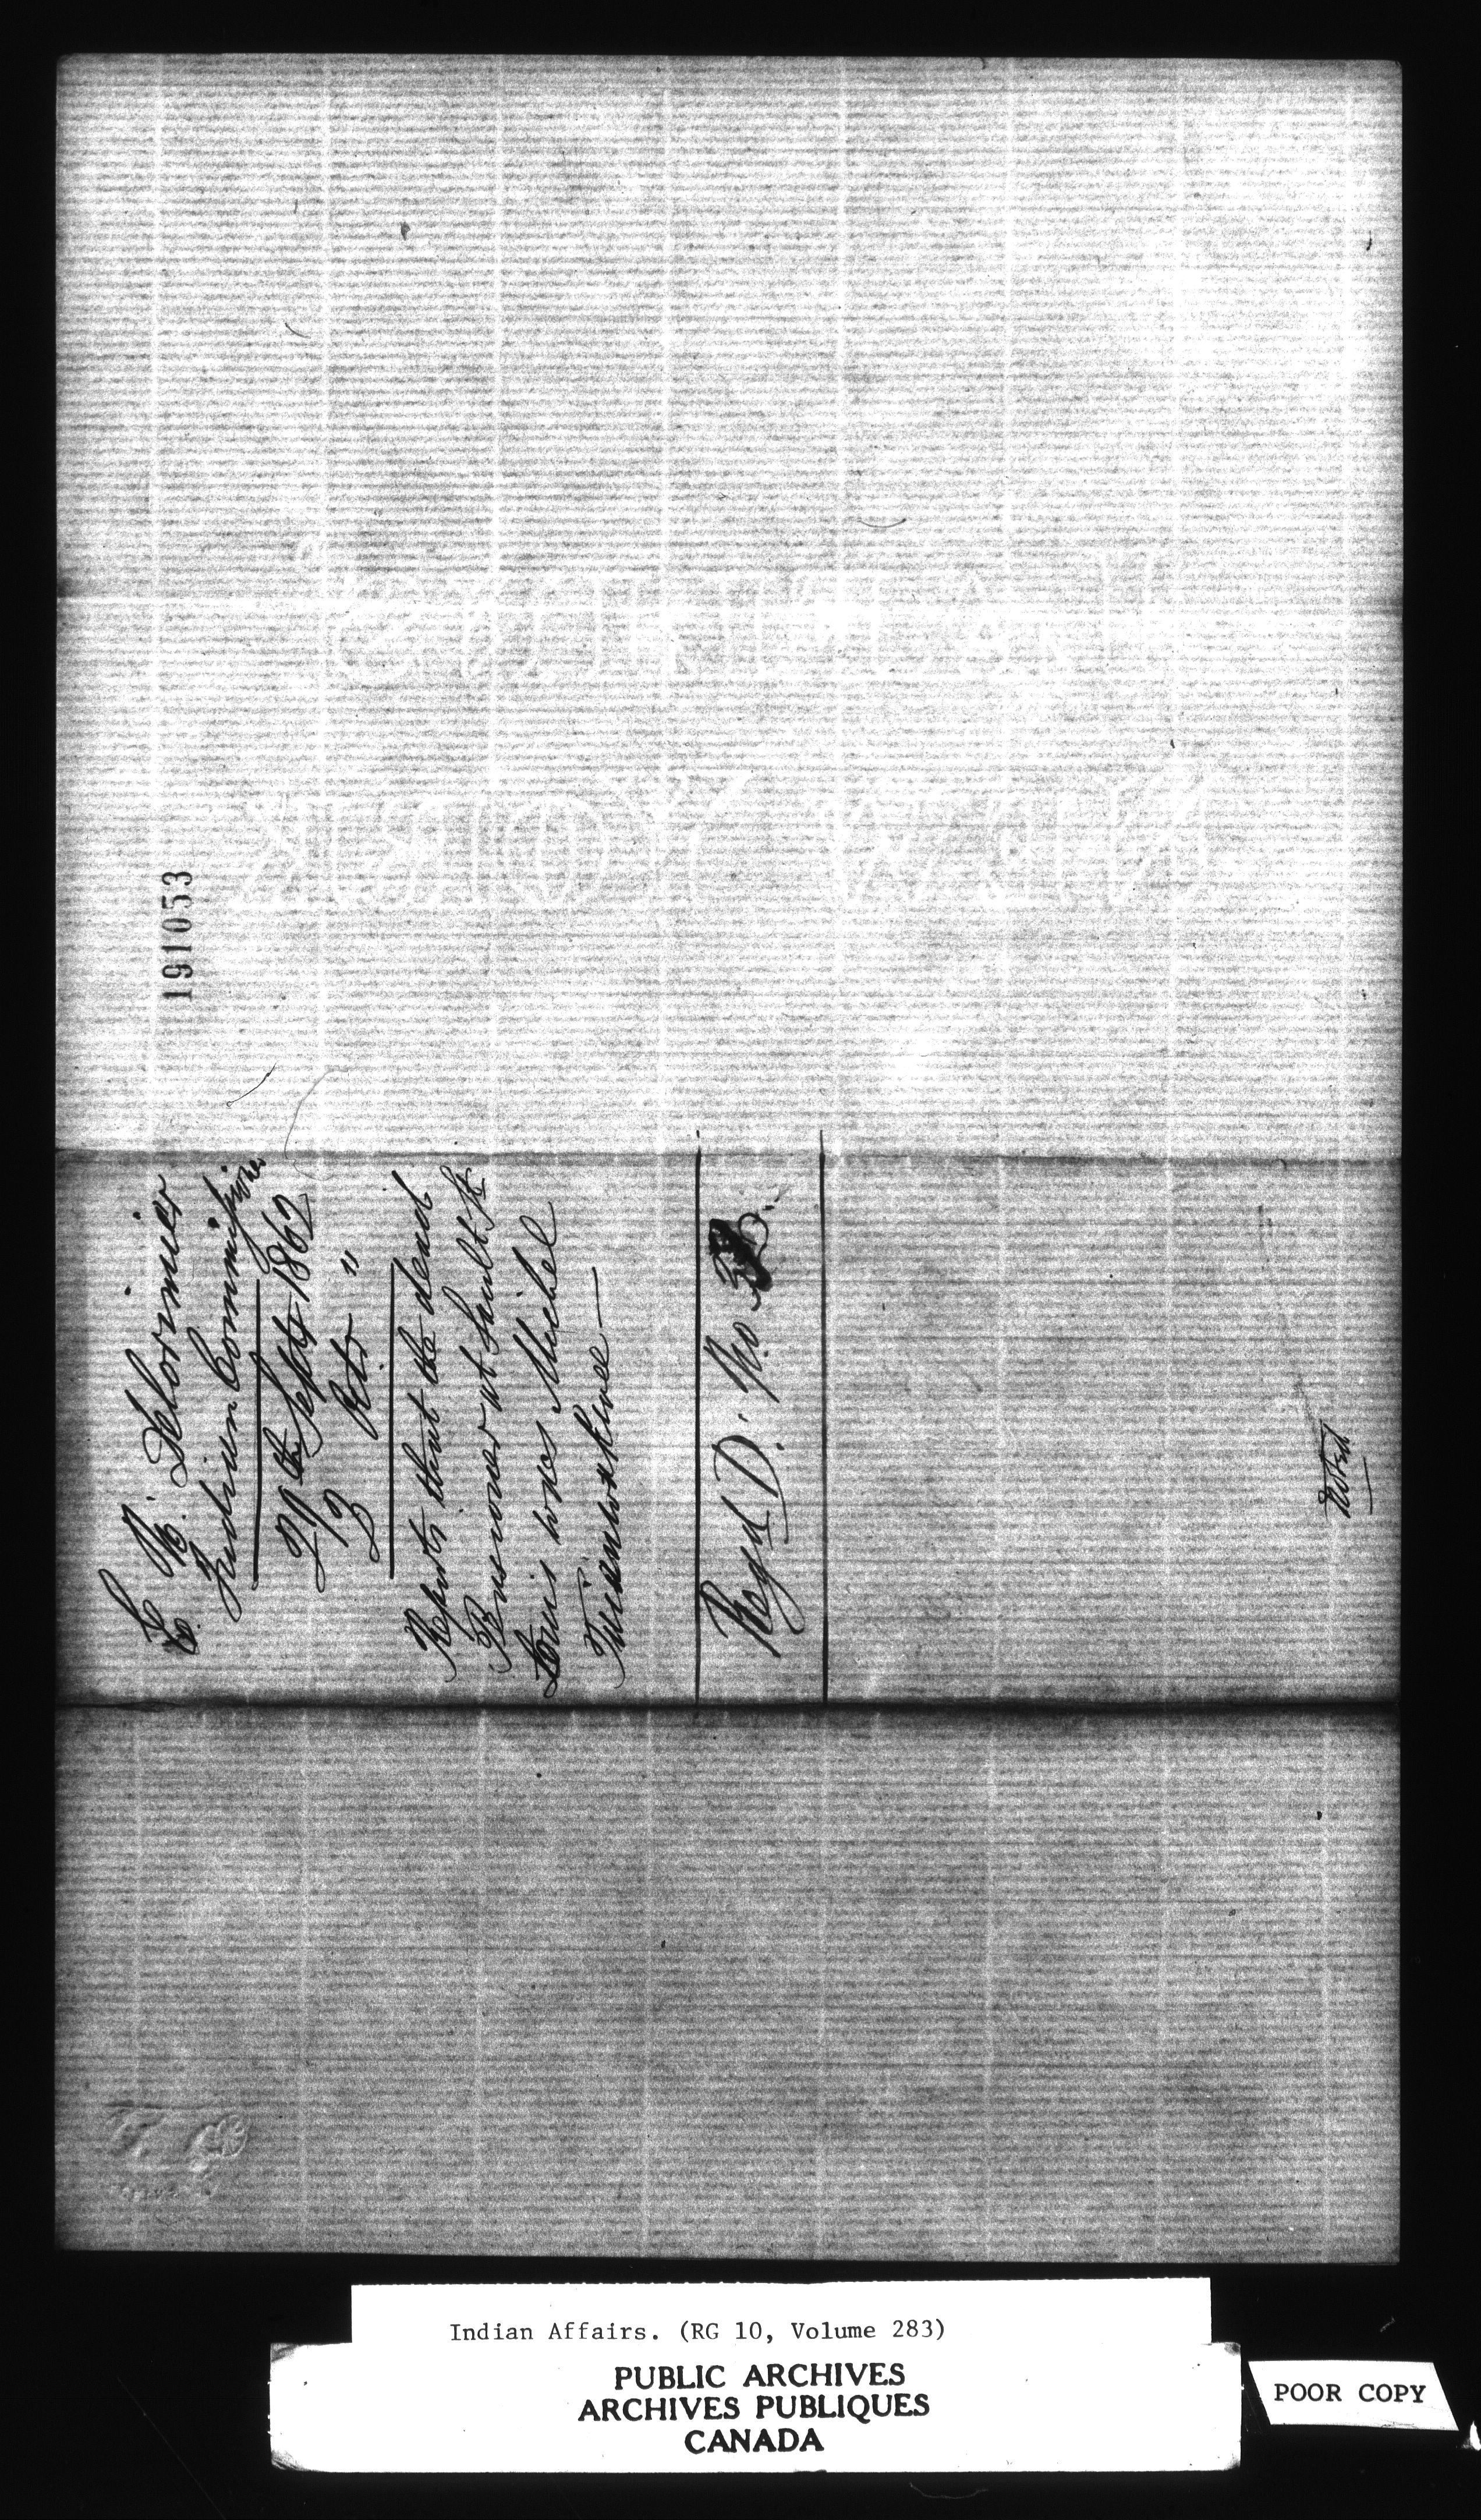 191053
E. N. Delorimier
Indian Commissioner
29th Sept 1862
Reports that the dead
Prisoner at Sault St
Louis was Michel
Regd D. No
Noted
Indian Affairs. (RG 10, Volume 283)
PUBLIC ARCHIVES
ARCHIVES PUBLIQUES
CANADA
POOR COPY